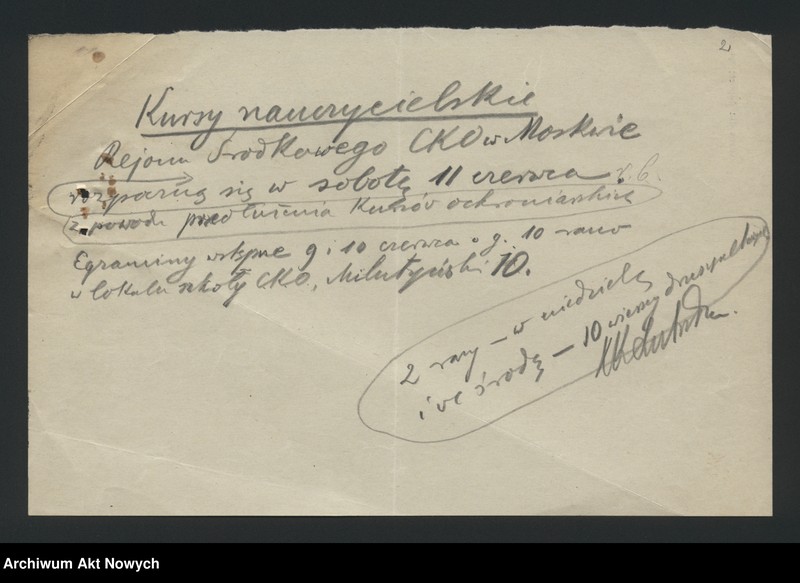 2
Kursy nauczycielskie
Rejonu Środkowego CKO w Moskwie
rozpoczną się w sobotę 11 czerwca r. b.
z powodu przedłużenia Kursów ochroniarskich
Egzaminy wstępne 9 i 10 czerwca o g. 10 rano
w lokalu szkoły CKO, Milutyński 10.
2 razy – w niedzielę
i we środę – 10 wierszy dwuszpaltowych
Archiwum Akt Nowych